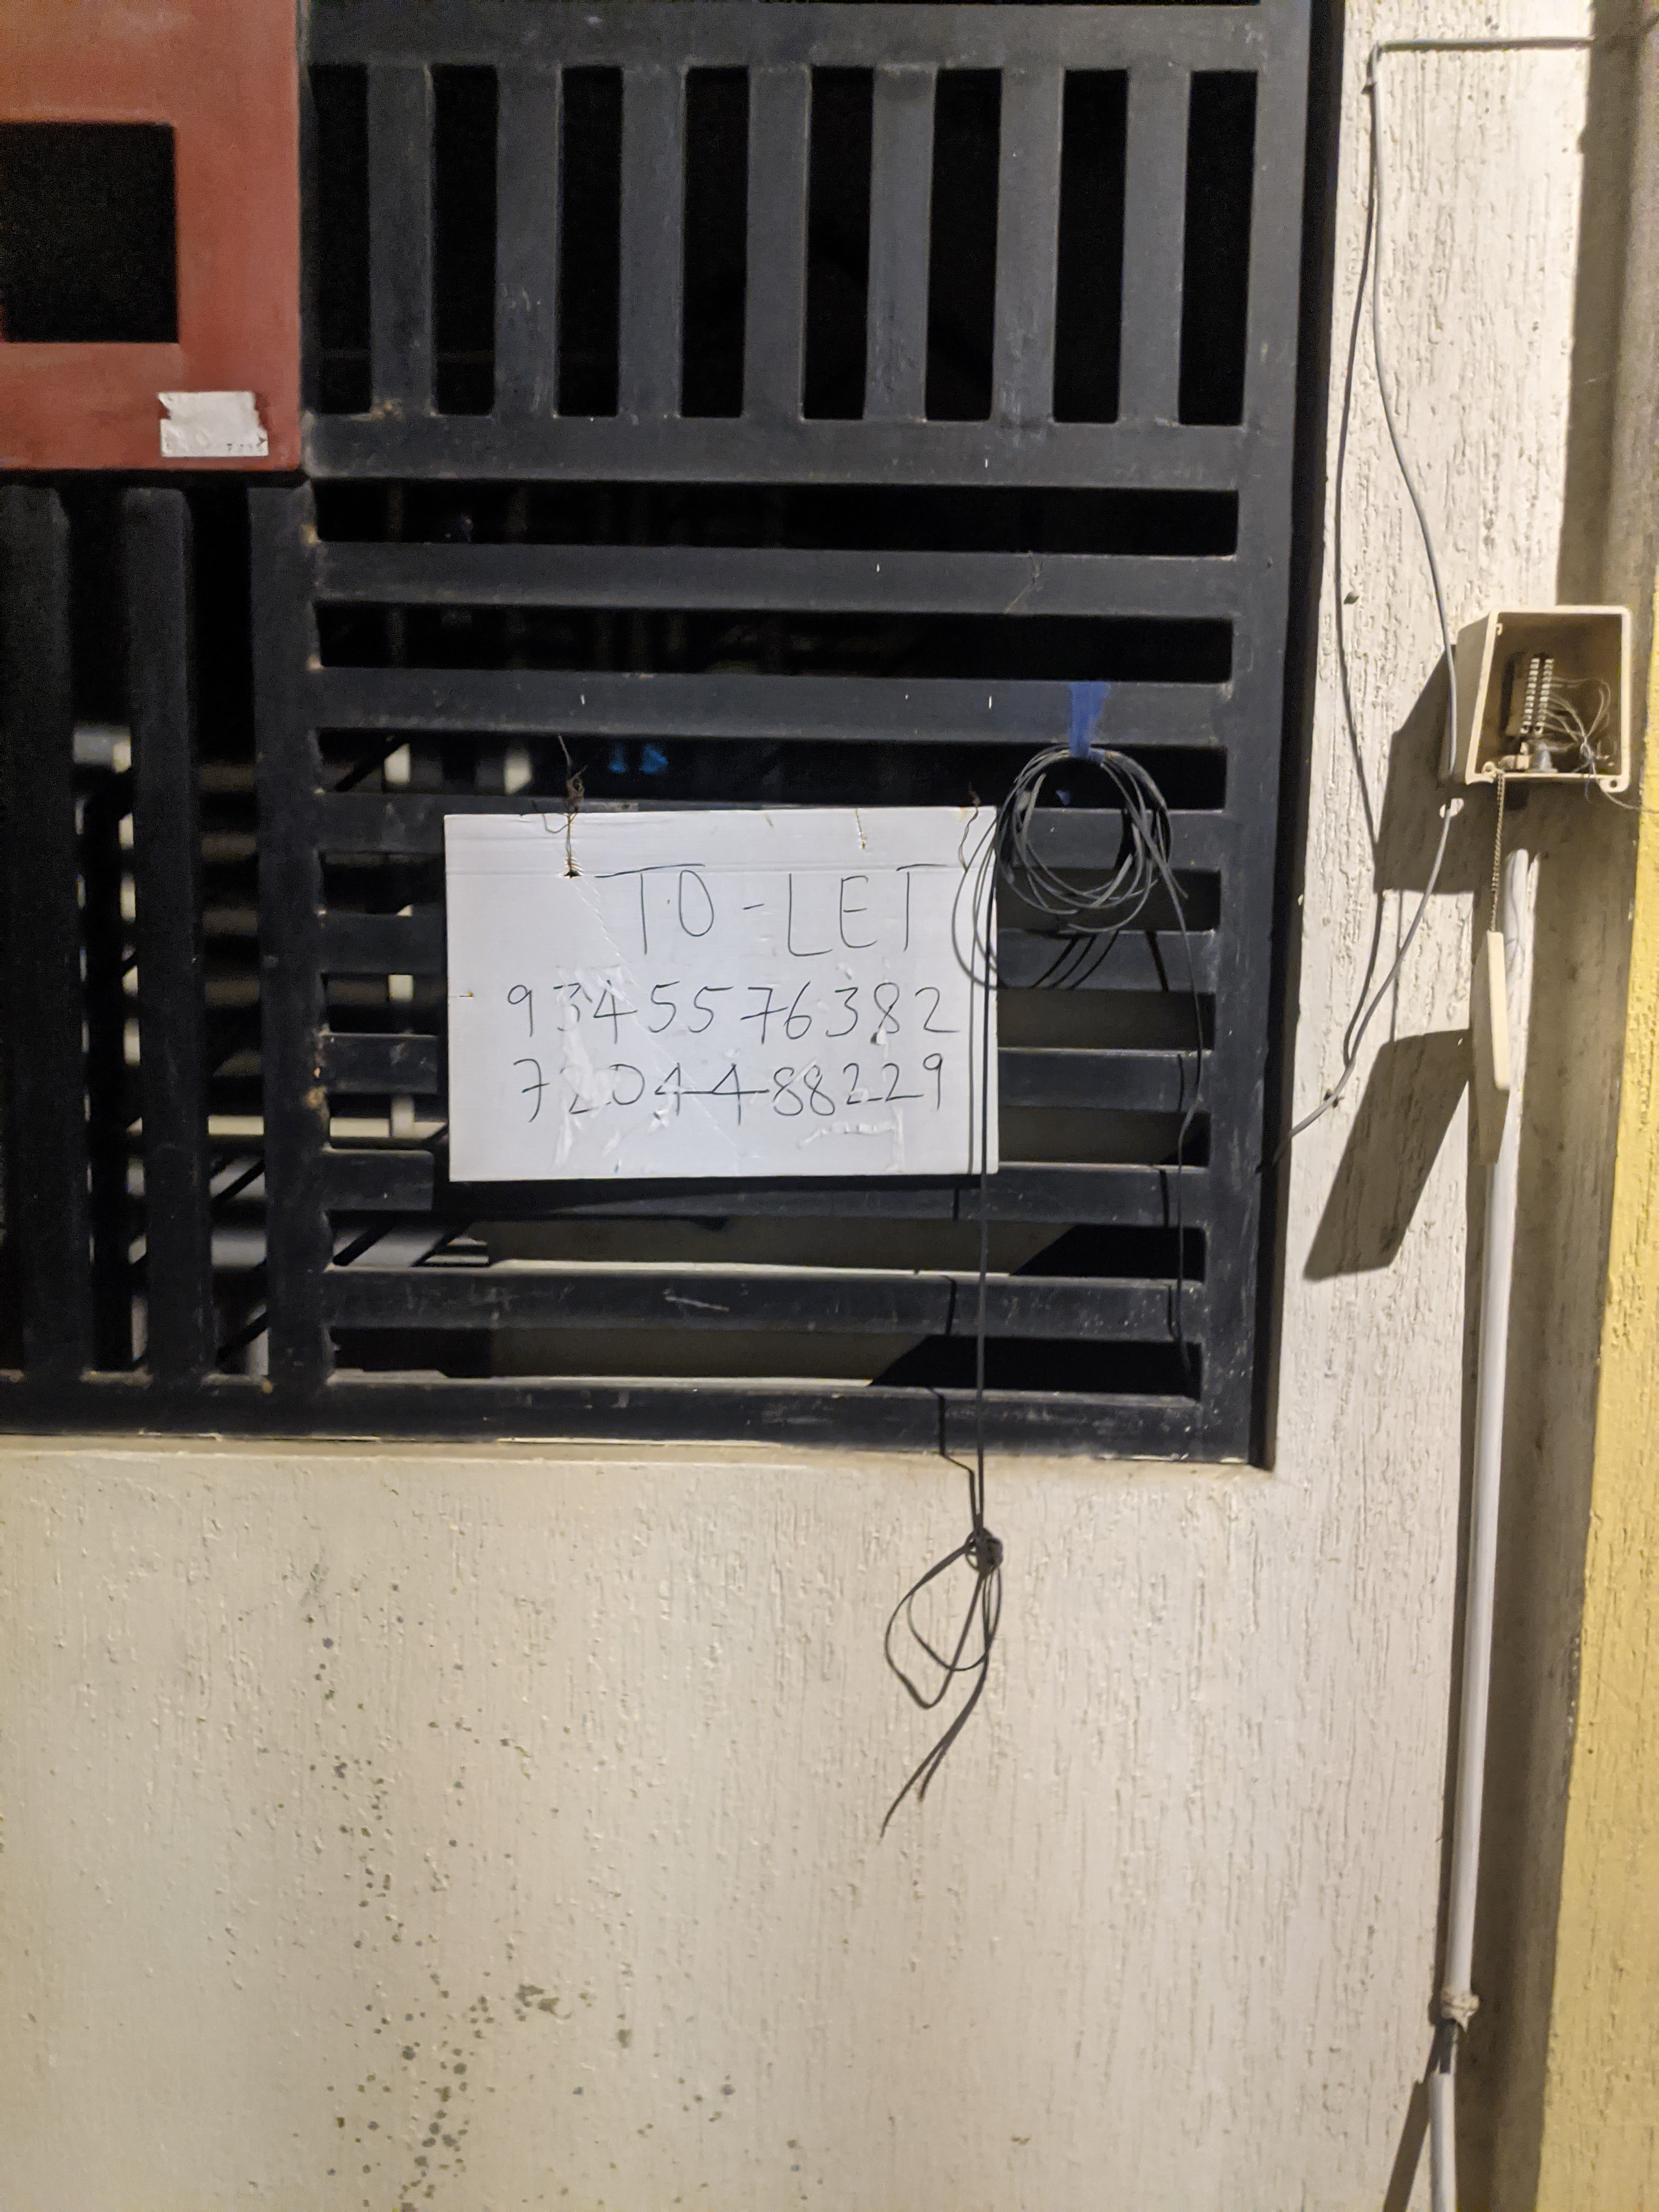 TO-LET
9345576382
7204488229